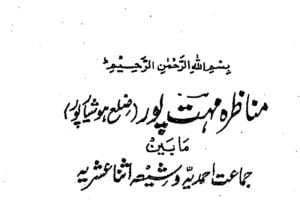 بِسْمِ اللهِ الرَّحْمٰنِ الرَّحِيْمِ
مناظرہ مہت پور (ضلع ہوشیارپور)
مابین
جماعت احمدیہ و شیعہ اثنا عشریہ